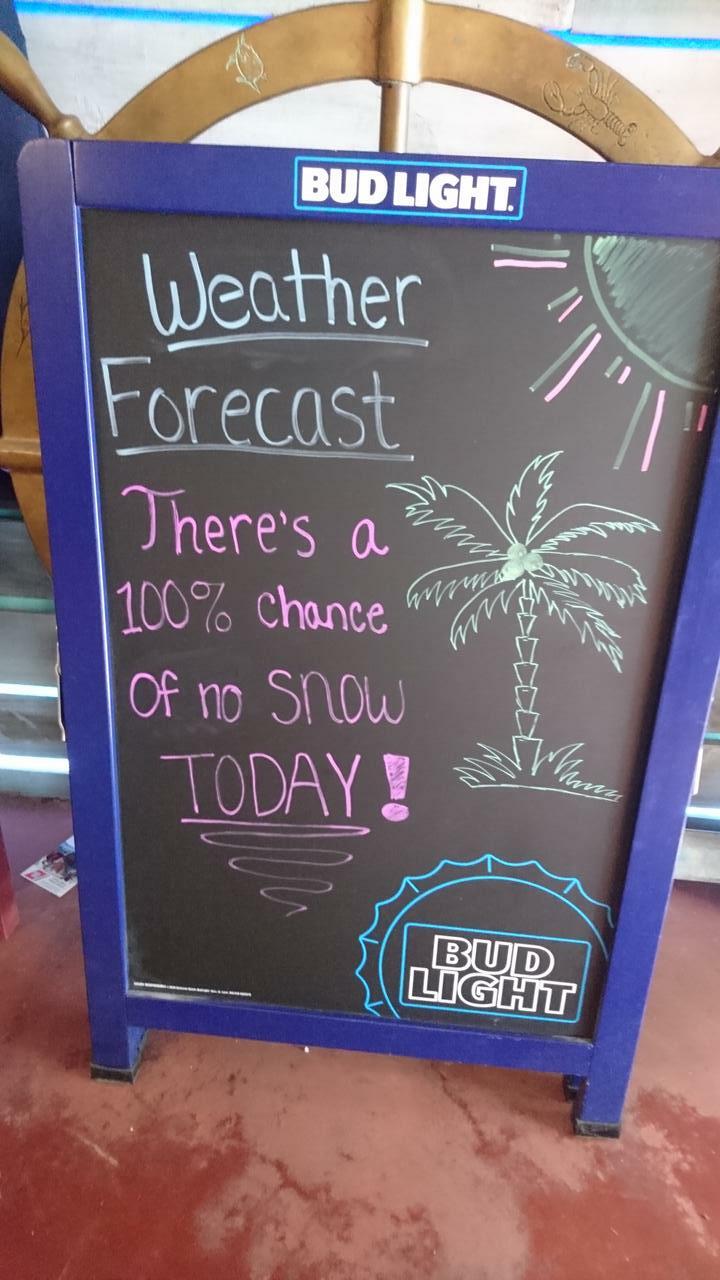 BUD LIGHT.
Weather
Forecast
There's a
100% chance
of no snow
TODAY!
BUD
LIGHT